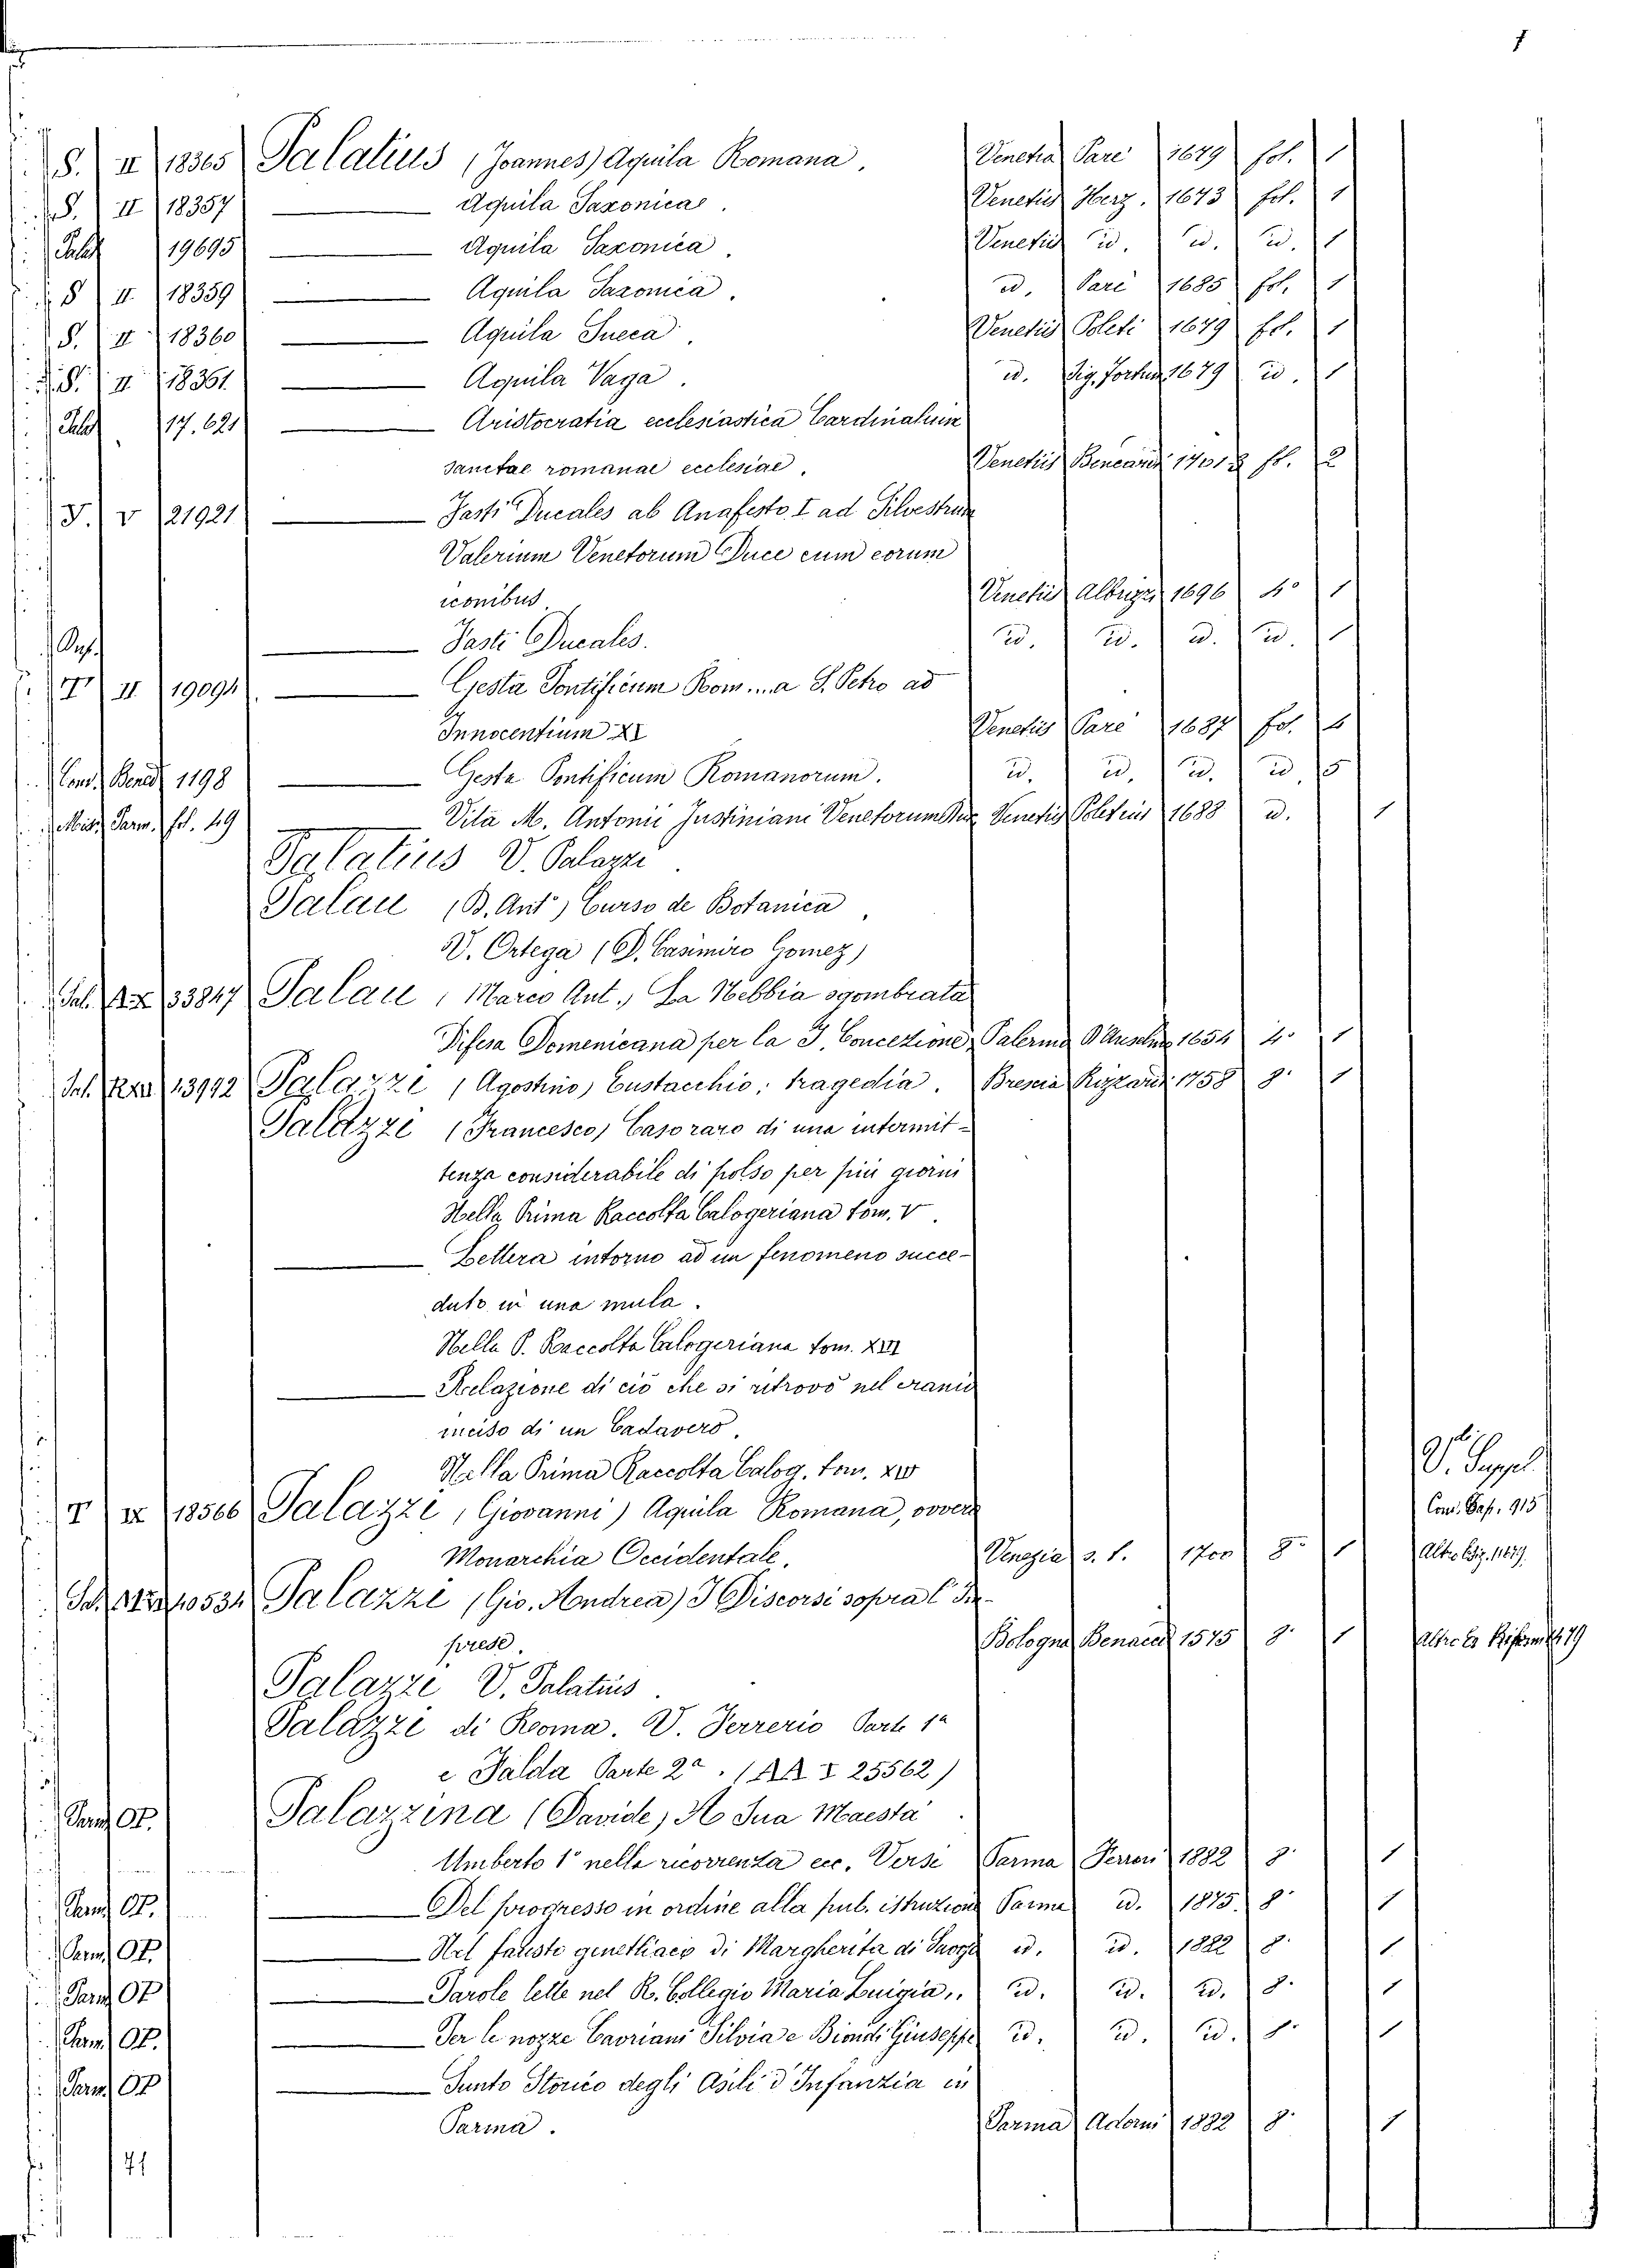 1
S. II 18365 Palatius (Joannes) Aquila Romana. Venetia Pare 1679 fol. 1
S. II 18357 Aquila Saxonica. Venetiis Herz. 1673 fol. 1
Palat 19695 Aquila Saxonica. Venetiis id. id. id. 1
S II 18359 Aquila Saxonica. id. Pare 1685 fol. 1
S. II 18360 Aquila Sueca. Venetiis Poleti 1679 fol. 1
S. II 18361 Aquila Vaga. id. Sig. Fortun. 1679 id. 1
Palat 17.621 Aristocratia ecclesiastica Cardinalium
sanctae romanae ecclesiae. Venetiis 1701 fol. 2
J. V 21921 Fasti Ducales ab Anafesto I ad Silvestrum
Valerium Venetorum Duce cum eorum
iconibus. Venetiis Albrizzi 1696 4° 1
Fasti Ducales. id. id. id. id. 1
T II 19094 Gesta Pontificum Rom... a S. Petro ad
Innocentium XI Venetiis Pare 1687 fol. 4
Cons. Bened 1198 Gesta Pontificum Romanorum. id. id. id. id 5
Misc. Parm. fol. 49 Vita M. Antonii Justiniani Venetorum Venetiis Poletius 1688 id. 1
Palatius V. Palazzi
Palau (B. Ant°) Curso de Botanica
V. Ortega (D. Casimiro Gomez)
Sal. 33847 Palau, Marco Ant., La Nebbia sgombrata
Difesa Domenicana per la I. Concezione, Palermo 1654 4° 1
Sal. 13992 Palazzi (Agostino) Eustacchio: tragedia. Brescia Rizzardi 1758 8° 1
Palazzi (Francesco) Caso raro di una intermit-
tenza considerabile di polso per più giorni
Nella Prima Raccolta Calogeriana tom. V.
Lettera intorno ad un fenomeno succe-
duto in una mula.
Nella P. Raccolta Calogeriana tom. XIII
Relazione di ciò che si ritrovò nel cranio
inciso di un Cadavero.
Nella Prima Raccolta Calog. tom. XIV
V. Suppl.
T IX 18566 Palazzi (Giovanni) Aquila Romana, ovvero Cons. Bap. 913
Monarchia Occidentale. Venezia s. t. 1700 8° 1 Altra Ediz. 11647
10534 Palazzi (Gio. Andrea) I Discorsi sopra l'Im-
prese. Bologna Benacci 1575 8° 1
Palazzi V. Palatius.
Palazzi di Roma. V. Ferrerio Parte 1a
e Falda Parte 2a. (AA I 25562)
Parm OP. Palazzina (Davide) A Sua Maestà
Umberto 1° nella ricorrenza ecc. Versi Parma Ferrari 1882 8° 1
Parm OP. Del progresso in ordine alla pub. istruzione Parma id. 1875. 8° 1
Parm OP. Nel fausto genetliaco di Margherita di Savoja id. id. 1882 8° 1
Parm OP Parole lette nel R. Collegio Maria Luigia.. id. id. id. 8° 1
Parm OP. Per le nozze Cavriani Silvia e Giuseppe id. id. id. 8° 1
Parm OP Sunto Storico degli Asili d'Infanzia in
Parma. Parma Adorni 1882 8° 1
71